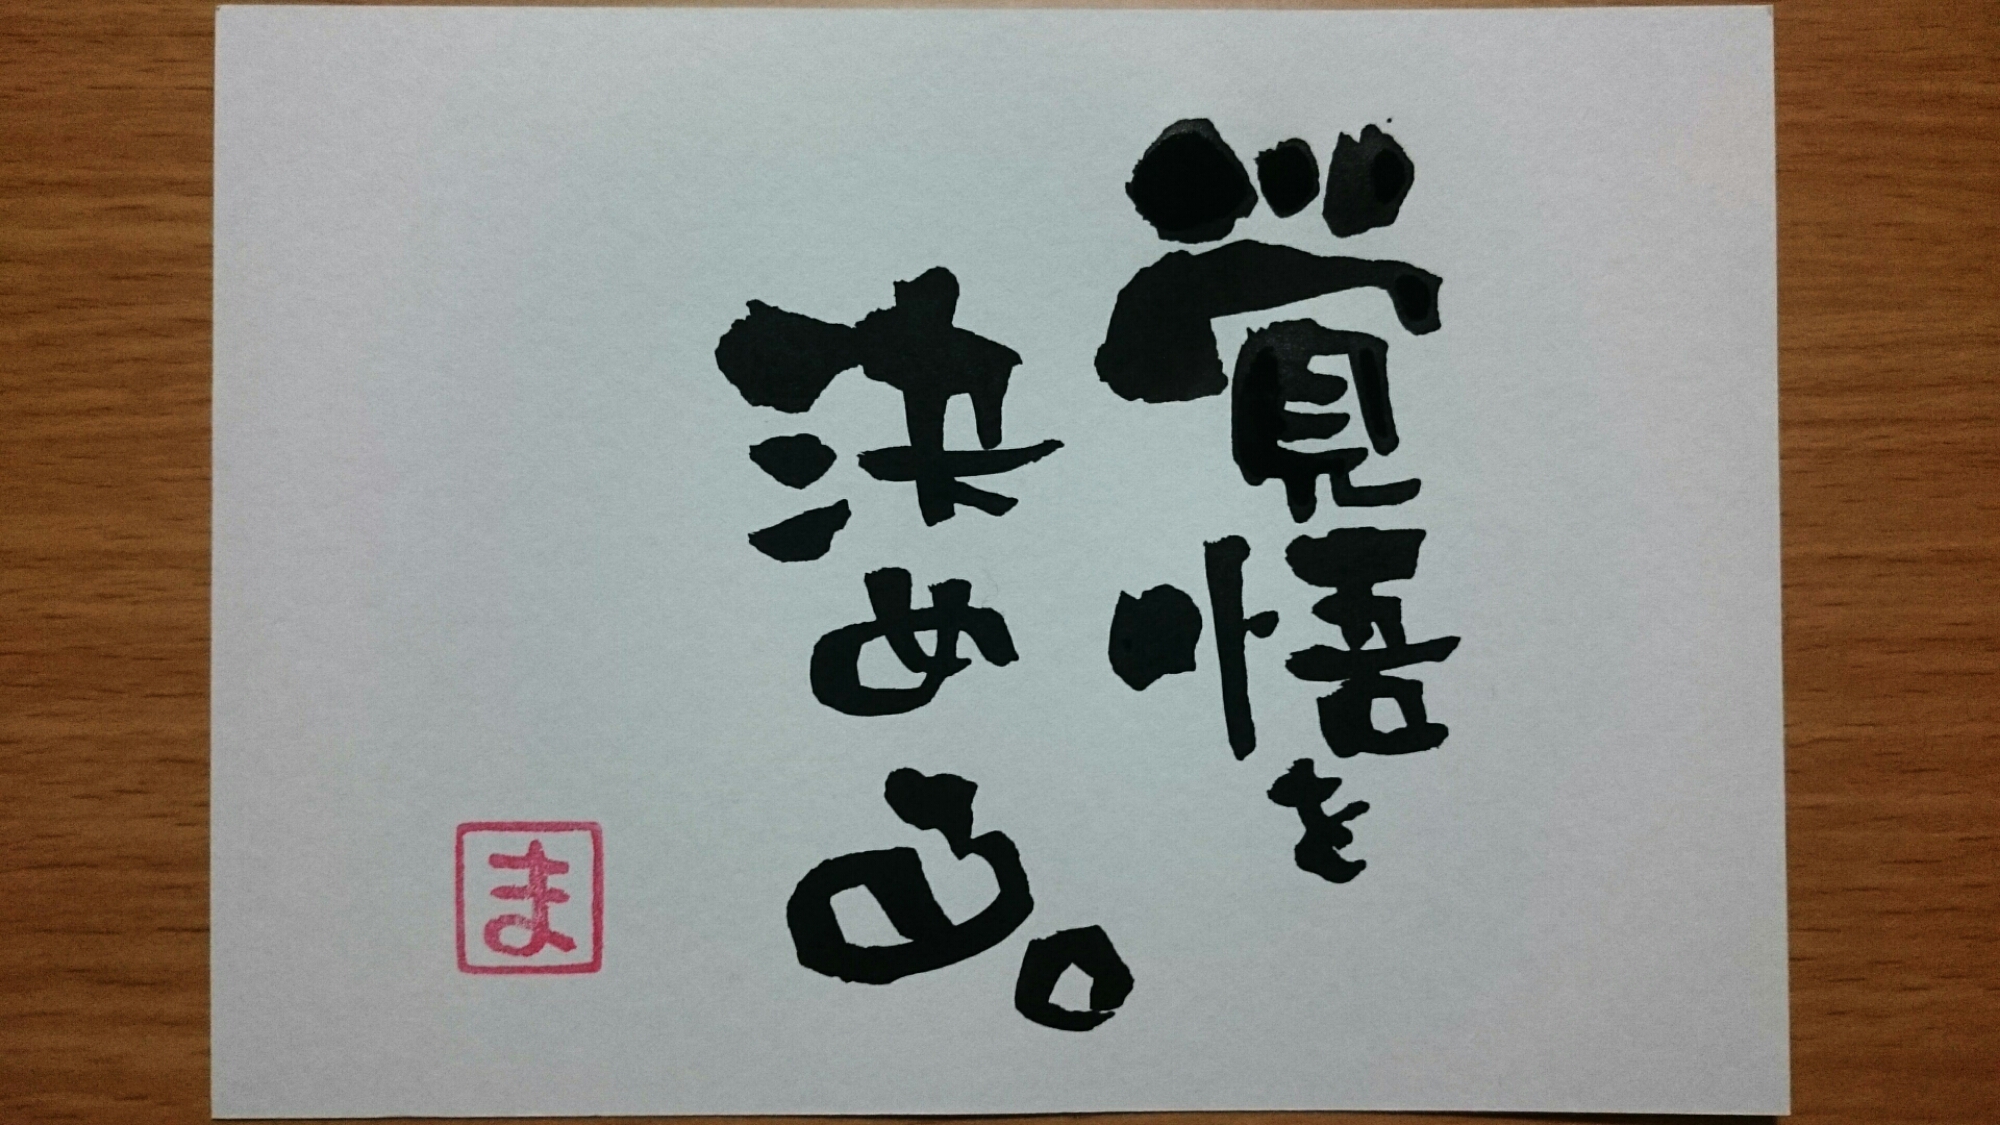 覚悟を
決める。
ま